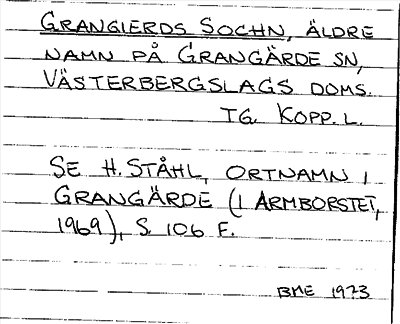 GRANGIERDS SOCHN, ÄLDRE
NAMN PÅ GRANGÄRDE SN,
VÄSTERBERGSLAGS DOMS.
TG. KOPP. L.
SE H. STÅHL, ORTNAMN I
GRANGÄRDE (I ARMBORSTET,
1969), S. 106 F.
BME 1973